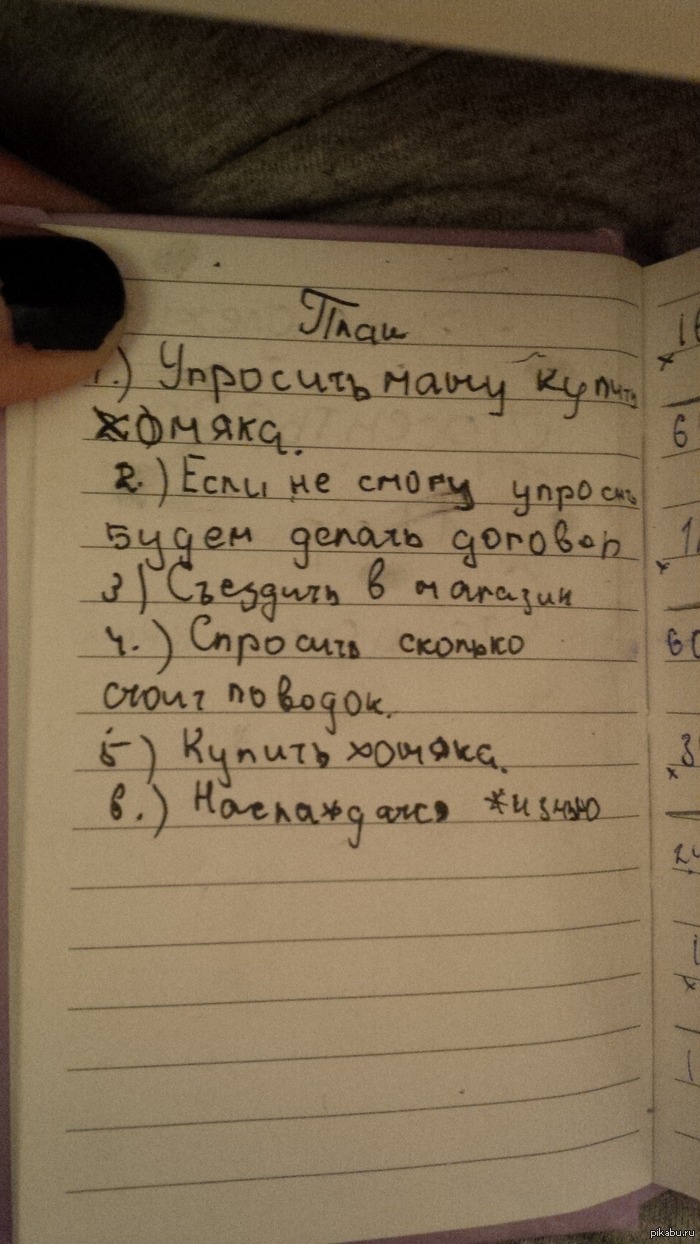 План
1.) Упросить маму купить
хомяка.
2.) Если не смогу упросить
будем делать договор
3) Съездить в магазин
4.) Спросить сколько
стоит поводок.
5) Купить хомяка.
6.) Наслаждатся жизнью
pikabu.ru